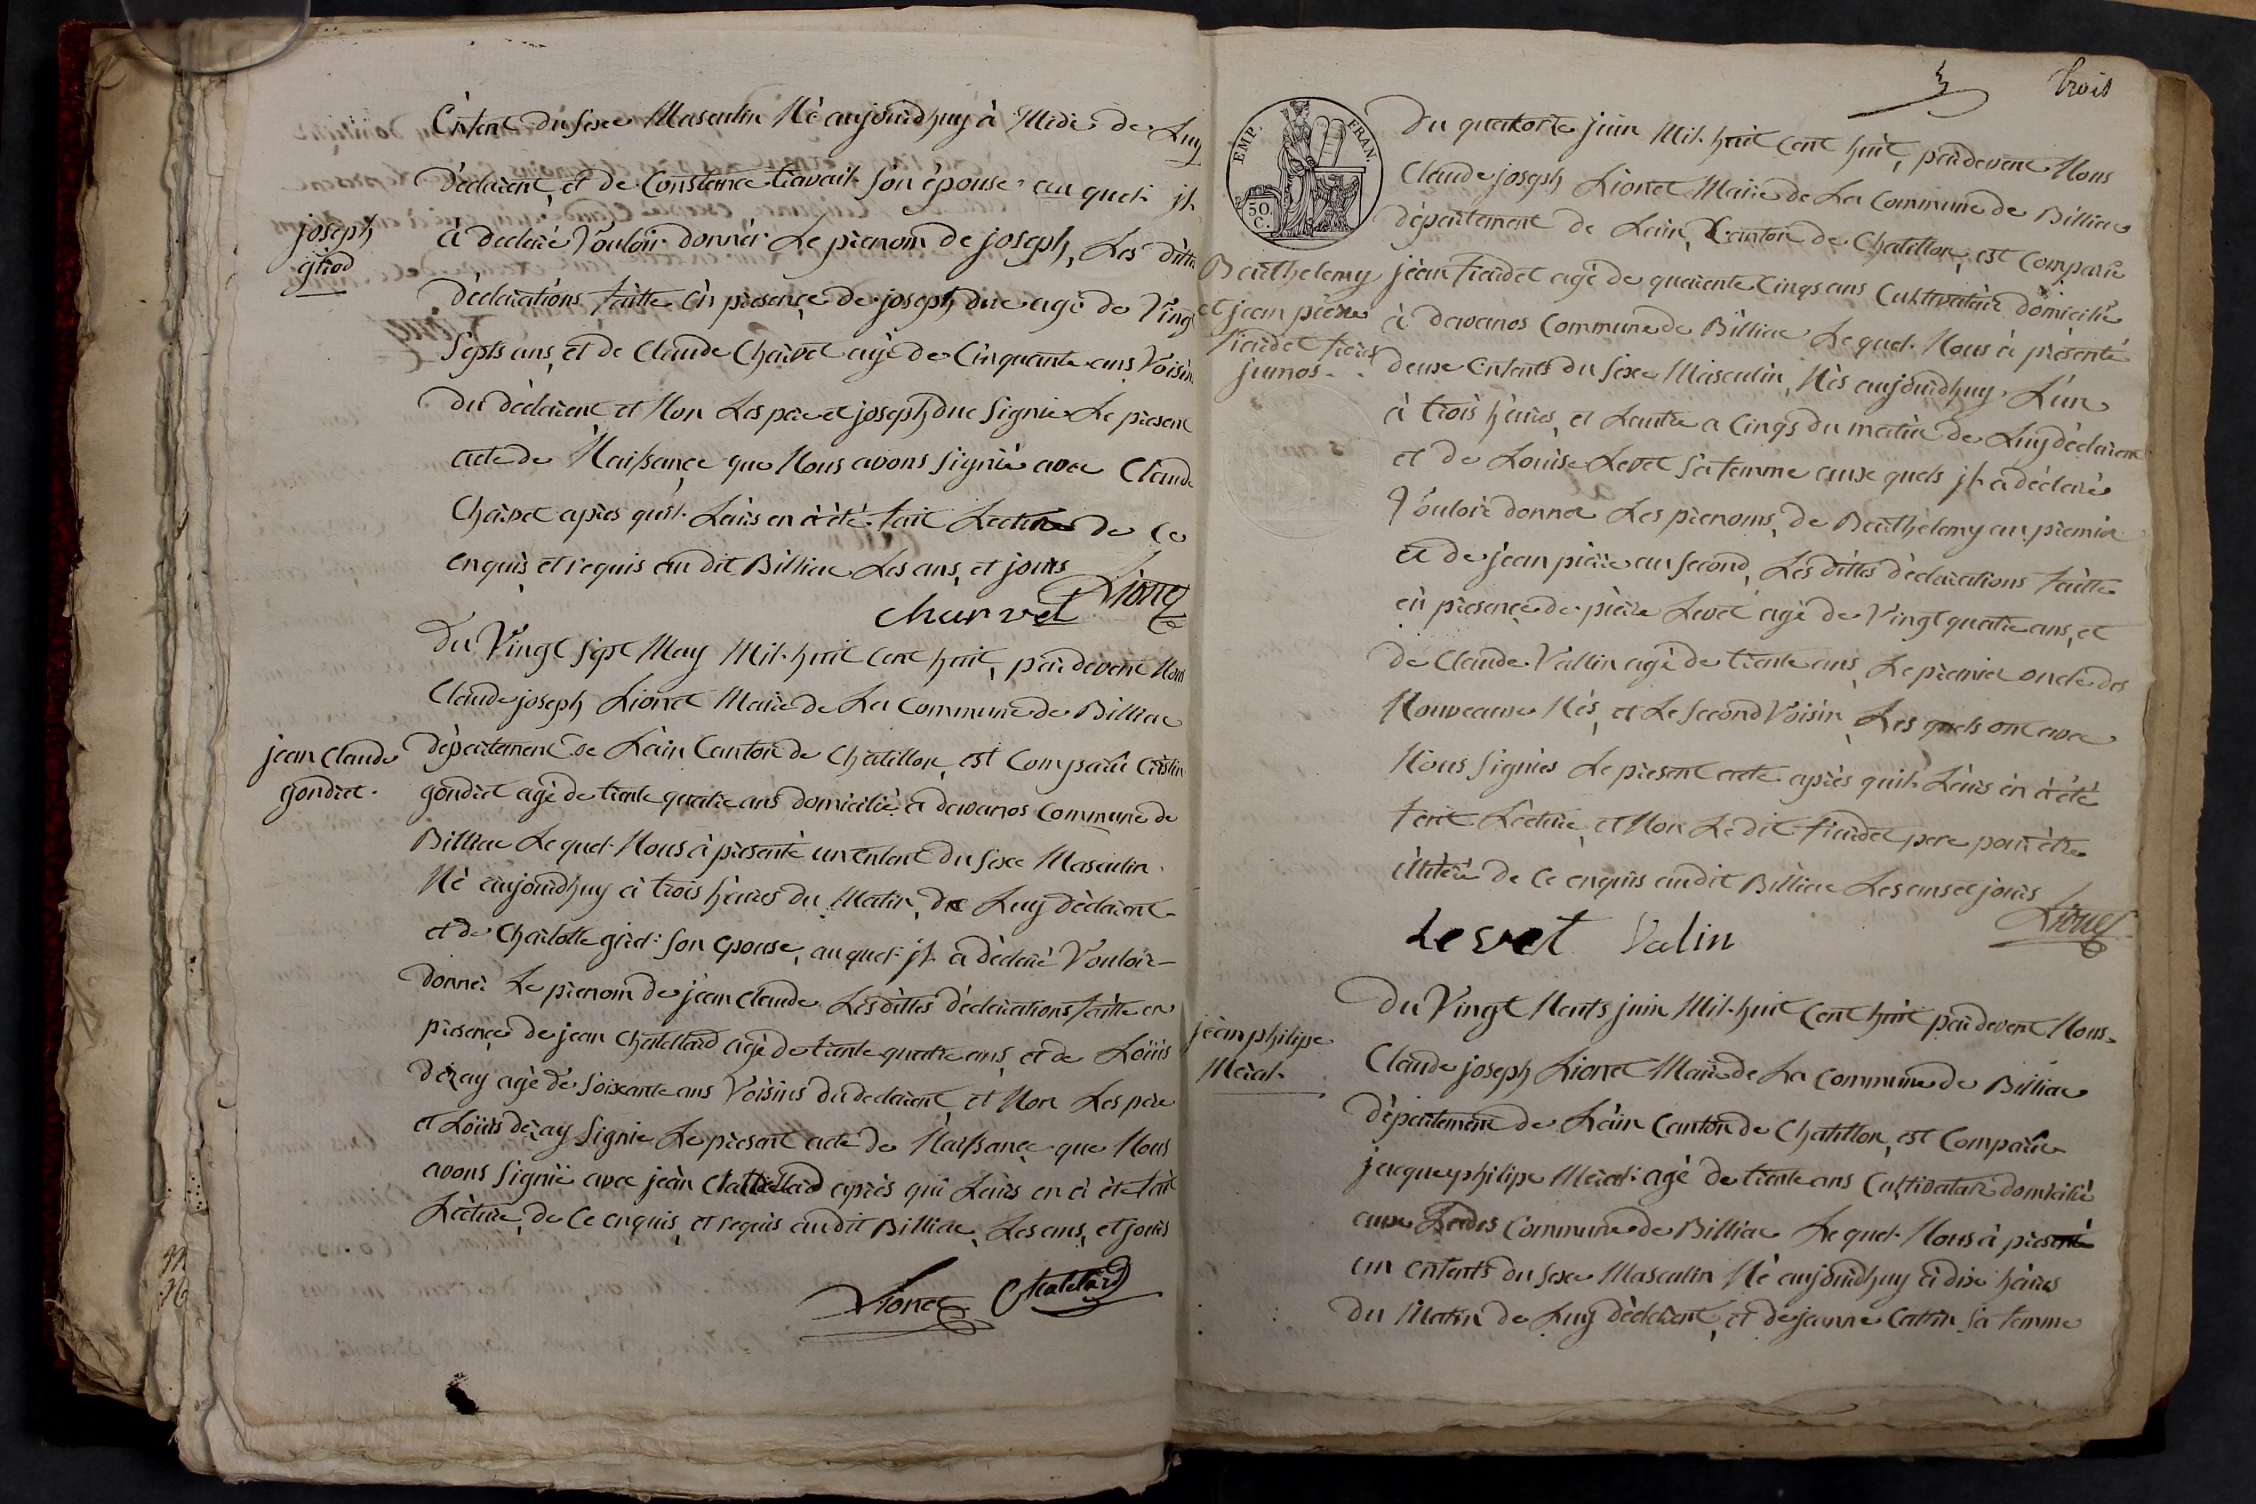 Enfent du sexe Masculin Né aujourdhuy à Midi de Luy
declarent, et de Constance travail son épouse auquel il
à declaré Vouloir donner Le prenom de joseph, Les dittes
joseph
griod
declarations faitte en presence de joseph duc agé de Vingt
Septs ans, et de Claude Charvet agé de Cinquante ans Voisins
du declarent et Non Les pere et joseph duc Signie Le present
acte de Naissance que Nous avons Signié avec Claude
Charvet apres quil Leurs en à été fait Lecture de Ce
enquis et requis au dit Billiac Les ans, et jours
charvet Lionet
Du Vingt Sept May Mil huit Cent huit, par devent Nous
Claude joseph Lionet Maire de La Commune de Billiac
département de Lain Canton de Chatillon, est Comparu
jean Claude
gondret
gondret agé de trente quatre ans domicilié à davanos Commune de
Billiac Lequel Nous à presenté un enfent du sexe Masculin
Né aujourdhuy à trois heures du Matin, de Luy declarent
et de Charlotte son epouse, auquel il a déclaré Vouloir
donner Le prenom de jean Claude Les dittes déclarations faitte en
presence de jean Chatellard agé de trente quatre ans, et de Loüis
deray agé de Soixante ans Voisins du declarent, et Non Les pere
et Loüis deray Signie Le present acte de Naissance que Nous
avons Signié avec jean Chatellard aprés qui Leurs en à été fait
Lecture, de Ce enquis, et requis au dit Billiac, Les ans, et jours
Lionet Chatelard
trois
EMP. FRAN.
50 C.
Du quatorze juin Mil huit Cent huit, par devent Nous
Claude joseph Lionet Maire de La Commune de Billiac
département de Lain, Canton de Chatillon, est Comparu
Barthelemy
et jean pierre
tiardet freres
jumos
jean tiardet agé de quarente Cinqs ans Cultivateur domicilié
à davanos Commune de Billiac Lequel Nous à présenté
deux enfents du sexe Masculin, Nés aujourdhuy, L'un
à trois heures, et Lautre a Cinqs du matin de Luy déclarent
et de Loüise Levet sa femme auxquels il a déclaré
Vouloir donner Les prenoms, de Barthelemy au premier
et de jean pierre au Second, Les dittes déclarations faitte
en presence de pierre Levet agé de Vingt quatre ans, et
de Claude Vallin agé de trente ans, Le premier oncle des
Nouveaux Nés, et Le Second Voisin, Les quels ont avec
Nous Signies Le present acte aprés quil Leurs en à été
fait Lecture, et Non Le dit tiardet pere pour étre
illiteré de Ce enquis audit Billiac Les ans et jours
Levet Valin Lionet
Du Vingt Neufs juin Mil huit Cent huit par devent Nous
Claude joseph Lionet Maire de La Commune de Billiac
jean philipe
Merat
département de Lain Canton de Chatillon, est Comparu
jacque philipe Merat agé de trente ans Cultivateur domicilié
aux Commune de Billiac Lequel Nous à presenté
un enfents du sexe Masculin Né aujourdhuy à dix heures
du Matin de Luy declarent, et de janne Cattin sa femme